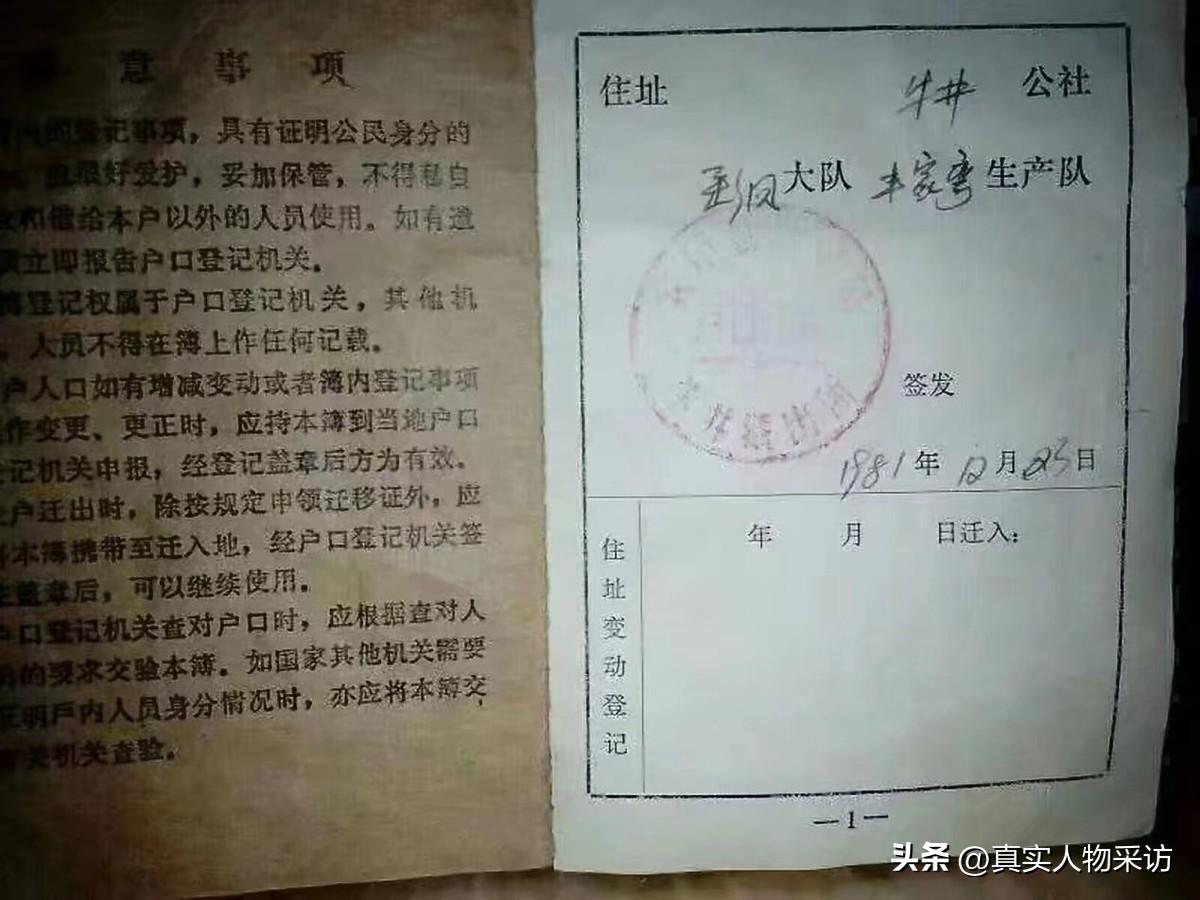 意事项
的登记事项，具有证明公民身分的
很好爱护，妥加保管，不得私自
和借给本户以外的人员使用。如有遗
立即报告户口登记机关。
簿登记权属于户口登记机关，其他机
、人员不得在簿上作任何记载。
户人口如有增减变动或者簿内登记事项
作变更、更正时，应持本簿到当地户口
登记机关申报，经登记盖章后方为有效。
户迁出时，除按规定申领迁移证外，应
将本簿携带至迁入地，经户口登记机关签
注盖章后，可以继续使用。
户口登记机关查对户口时，应根据查对人
员的要求交验本簿。如国家其他机关需要
证明户内人员身分情况时，亦应将本簿交
有关机关查验。
住址 牛井 公社
大队 丰家湾 生产队
派出所
签发
1981年12月23日
年 月 日迁入：
住址变动登记
—1—
头条 @真实人物采访